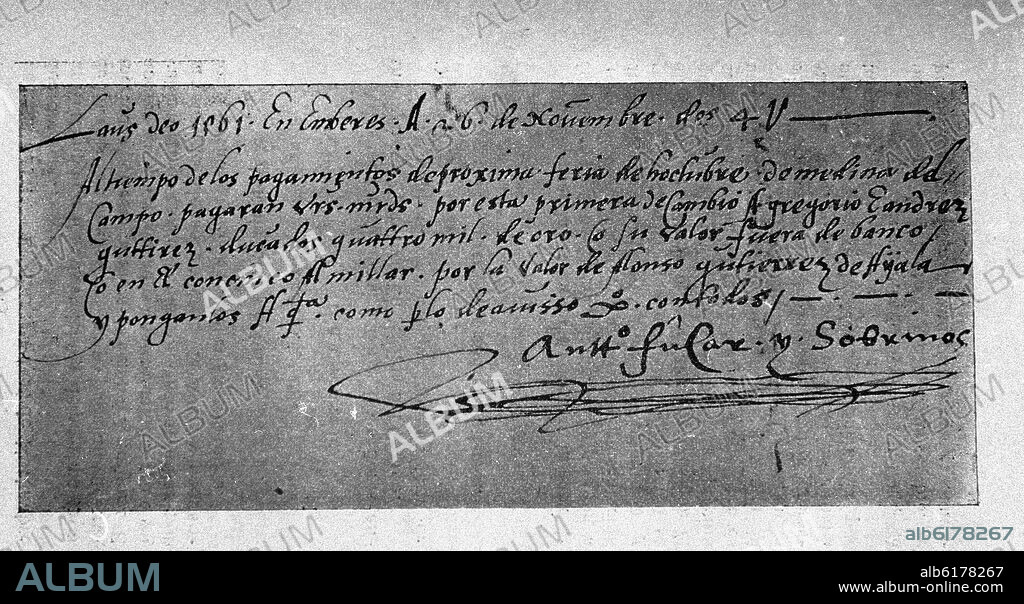 Laus deo 1561. En Enberes. A. 26. de Nouiembre. dos 4 U
Al tiempo de los pagamientos de proxima feria de hoctubre de medina del
Campo. pagaran vrs. mrds. por esta primera de Cambio A gregorio E andrez
gutirez. ducados quattro mil. de oro. o su valor fuera de banco
con cinco Al millar. por la valor de Alonso gutierrez de Ayala
y ponganlos A qta. como plo de auisso con todos
Antto. fucar. y. Sobrinos
ALBUM
alb6178267
ALBUM
alb6178267
www.album-online.com